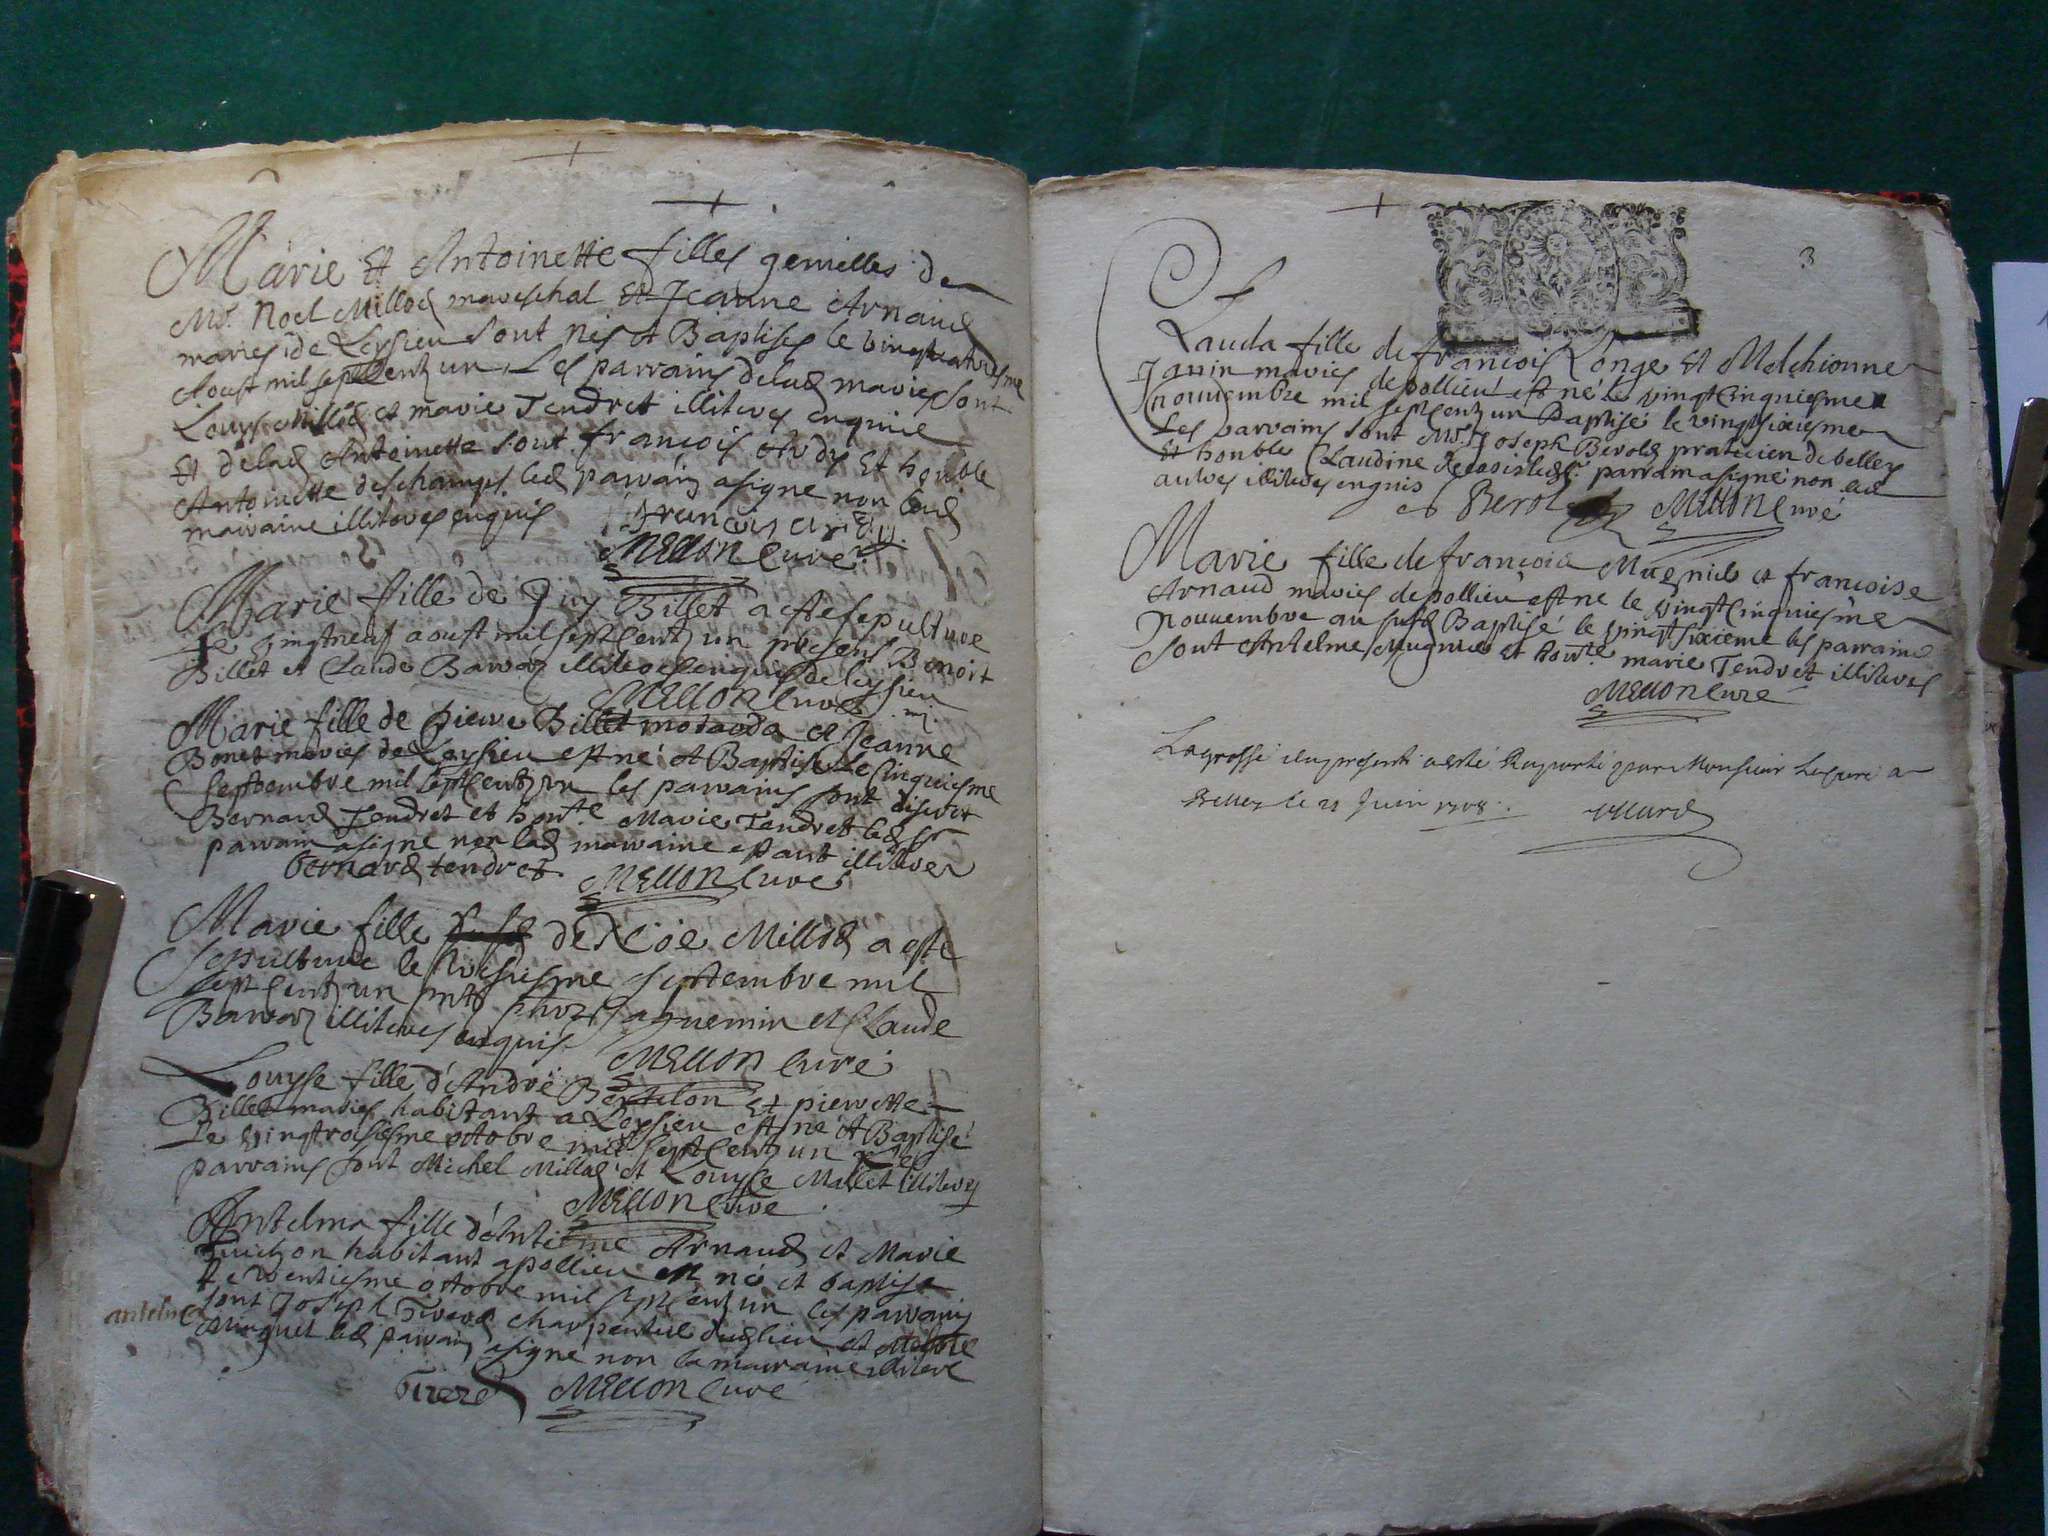 Marie Et Antoinette filles gemelles de
Mr. Noel Millod mareschal Et Jeanne Arnaud
maries de Leysieu sont nés et Baptisés le vingtquatriesme
Aoust mil sept centz un, Les parrains de lad marie sont
Louys Millod et marie Tendret illiteres enquis
Et de lad Antoinette sont françois Ardy Et honble
Antoinette deschamps led parrain a signe non lad
marraine illiteres enquis
françois Ardy
MELLON Curé
Marie fille de Guy Billet a este sepulture
le vingtneuf aoust mil sept centz un presens Benoit
Billet et Claude illiteres enquis de leysieu
MELLON Curé
Marie fille de pierre Billet et Jeanne
Bonet maries de Leysieu est né et Baptisé le cinquiesme
septembre mil sept centz un les parrains sont discret
Bernard Tendret et honte Marie Tendret led sr
parrain a signe non lad marraine estant illitere
bernard tendret MELLON Curé
Marie fille de Noé Millod a este
sepulture le septembre mil
sept centz un Jaquemin et Claude
illiteres enquis
MELLON Curé
Louyse fille d'André Bertelon Et pierrette
Billet maries habitant a Leysieu est né et Baptisé
le vingtroisiesme octobre mil sept centz un les
parrains sont Michel Millod et Louyse Mallet illiteres
MELLON Curé
Antelma fille d'Antelme Arnaud et Marie
Guichon habitant a pollieu est né et baptise
le trentiesme octobre mil sept centz un les parrains
sont Joseph Tirerd charpentier dud lieu et
led parrain a signé non la marraine illitere
antelme
MELLON Curé
3
Clauda fille de françois Longe Et Melchionne
Janin maries de pollieu est né le vingt cinquiesme
nouvembre mil sept centz un Baptisé le vingt sixiesme
Les parrains sont Mr. Joseph Berold praticien de belley
Et honble Claudine parrain a signé non les
autres illiteres enquis
Berol MELLON Curé
Marie fille de françois et françoise
Arnaud maries de pollieu est né le vingt cinquiesme
nouvembre an susd Baptisé le vingt sixieme les parrains
sont Antelme Et honte marie Tendret illiteres
MELLON Curé
La grosse du present a esté Raporté par Monsieur Le curé a
Belley le 21 Juin 1708.